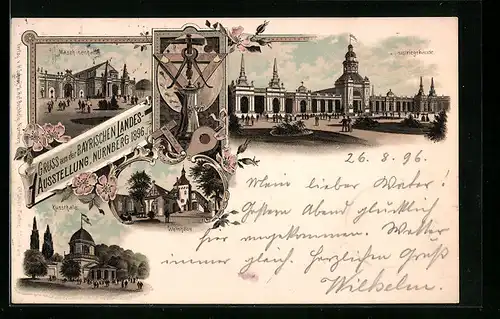 Maschinenhalle
Industriegebäude
GRUSS aus der BAYRISCHEN LANDES-
AUSSTELLUNG, NÜRNBERG 1896.
Kunsthalle
26.8.96.
Mein lieber Vater!
Gestern Abend glücklich
hier angekommen. Wetter
immer gleich. Herzlichen Gruß
Wilhelm.